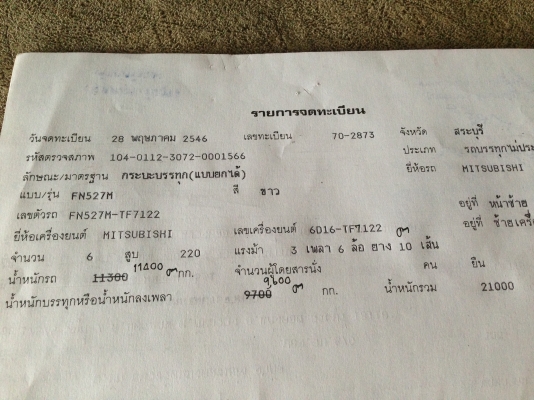 รายการจดทะเบียน
วันจดทะเบียน 28 พฤษภาคม 2546 เลขทะเบียน 70-2873 จังหวัด สระบุรี
รหัสตรวจสภาพ 104-0112-3072-0001566 ประเภท รถบรรทุกไม่ประ
ลักษณะ/มาตรฐาน กระบะบรรทุก(แบบยกได้) ยี่ห้อรถ MITSUBISHI
แบบ/รุ่น FN527M สี ขาว
เลขตัวรถ FN527M-TF7122 อยู่ที่ หน้าซ้าย
ยี่ห้อเครื่องยนต์ MITSUBISHI เลขเครื่องยนต์ 6D16-TF7122 อยู่ที่ ซ้ายเครื่
จำนวน 6 สูบ 220 แรงม้า 3 เพลา 6 ล้อ ยาง 10 เส้น
น้ำหนักรถ 11300 11400 กก. จำนวนผู้โดยสารนั่ง คน ยืน
น้ำหนักบรรทุกหรือน้ำหนักลงเพลา 9700 9600 กก. น้ำหนักรวม 21000